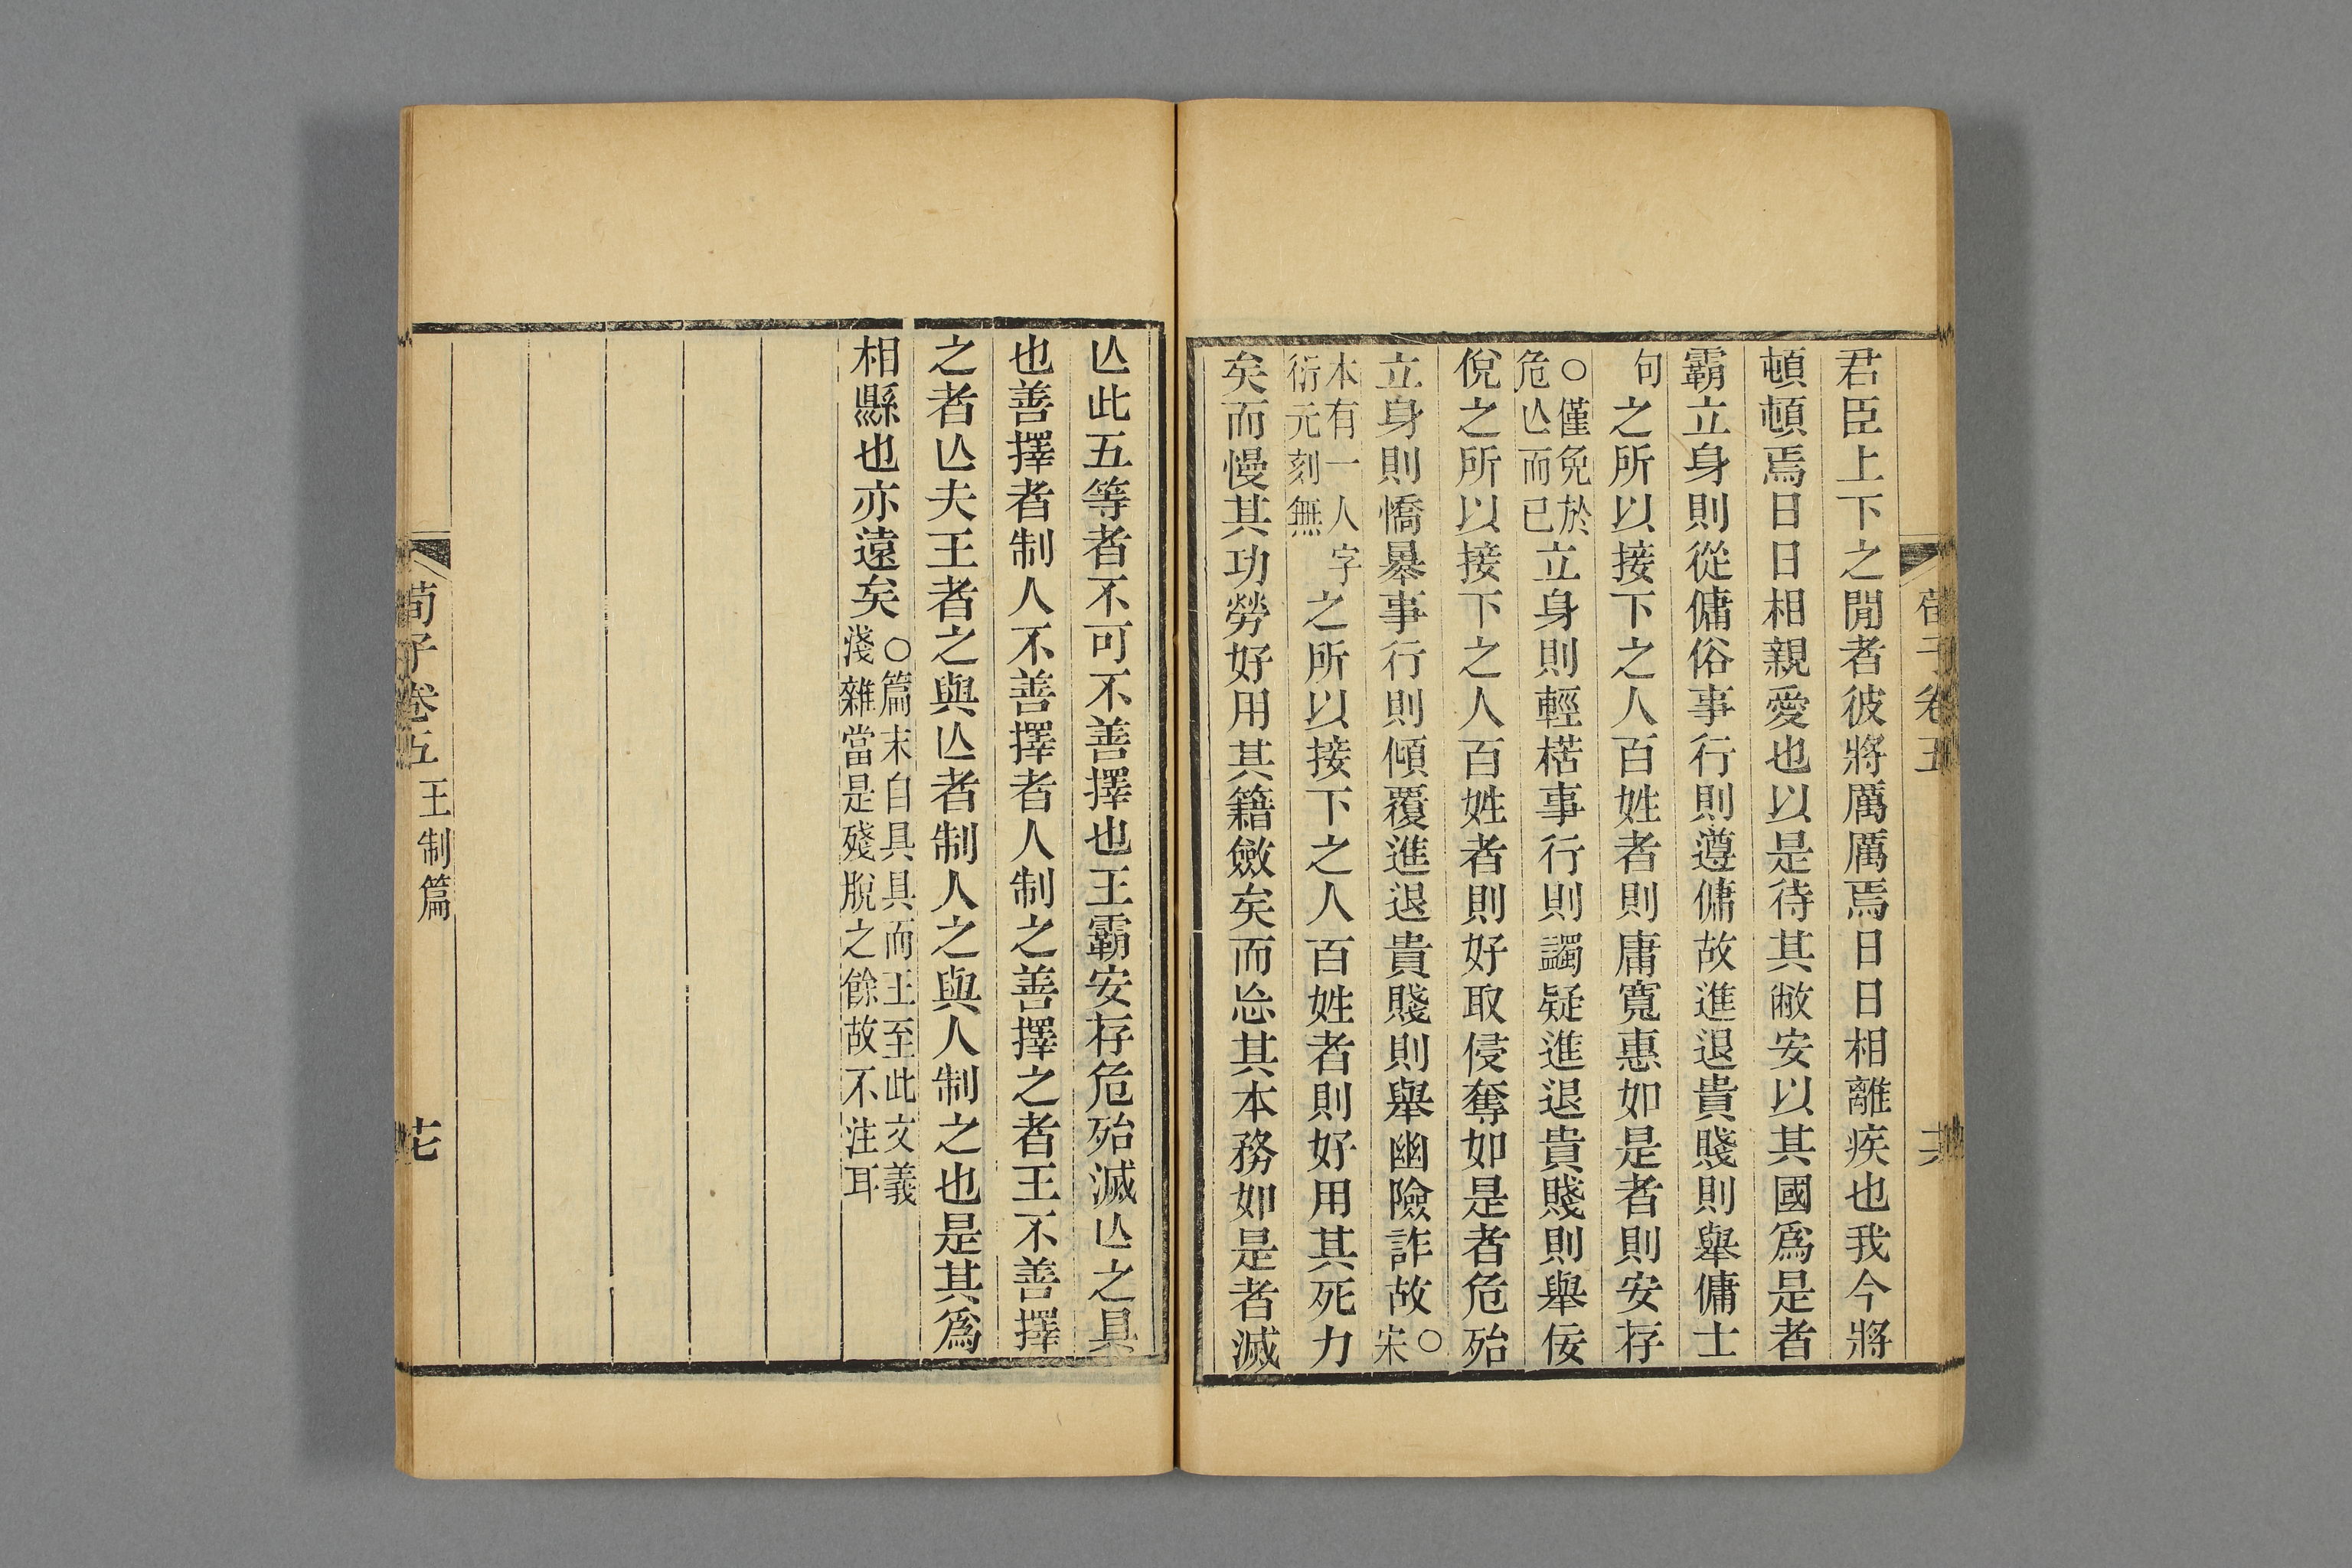 君臣上下之閒者彼將厲厲焉日日相離疾也我今將
頓頓焉日日相親愛也以是待其敝安以其國爲是者
霸立身則從傭俗事行則遵傭故進退貴賤則舉傭士
句之所以接下之人百姓者則庸寬惠如是者則安存
○僅免於
危亾而已
立身則輕楛事行則蠲疑進退貴賤則舉佞
侻之所以接下之人百姓者則好取侵奪如是者危殆
立身則憍暴事行則傾覆進退貴賤則舉幽險詐故○宋
本有一人字
衍元刻無
之所以接下之人百姓者則好用其死力
矣而慢其功勞好用其籍斂矣而忘其本務如是者滅
荀子卷五
亾此五等者不可不善擇也王霸安存危殆滅亾之具
也善擇者制人不善擇者人制之善擇之者王不善擇
之者亾夫王者之與亾者制人之與人制之也是其爲
相縣也亦遠矣
○篇末自具具而王至此文義
淺雜當是殘脫之餘故不注耳
荀子卷五 王制篇